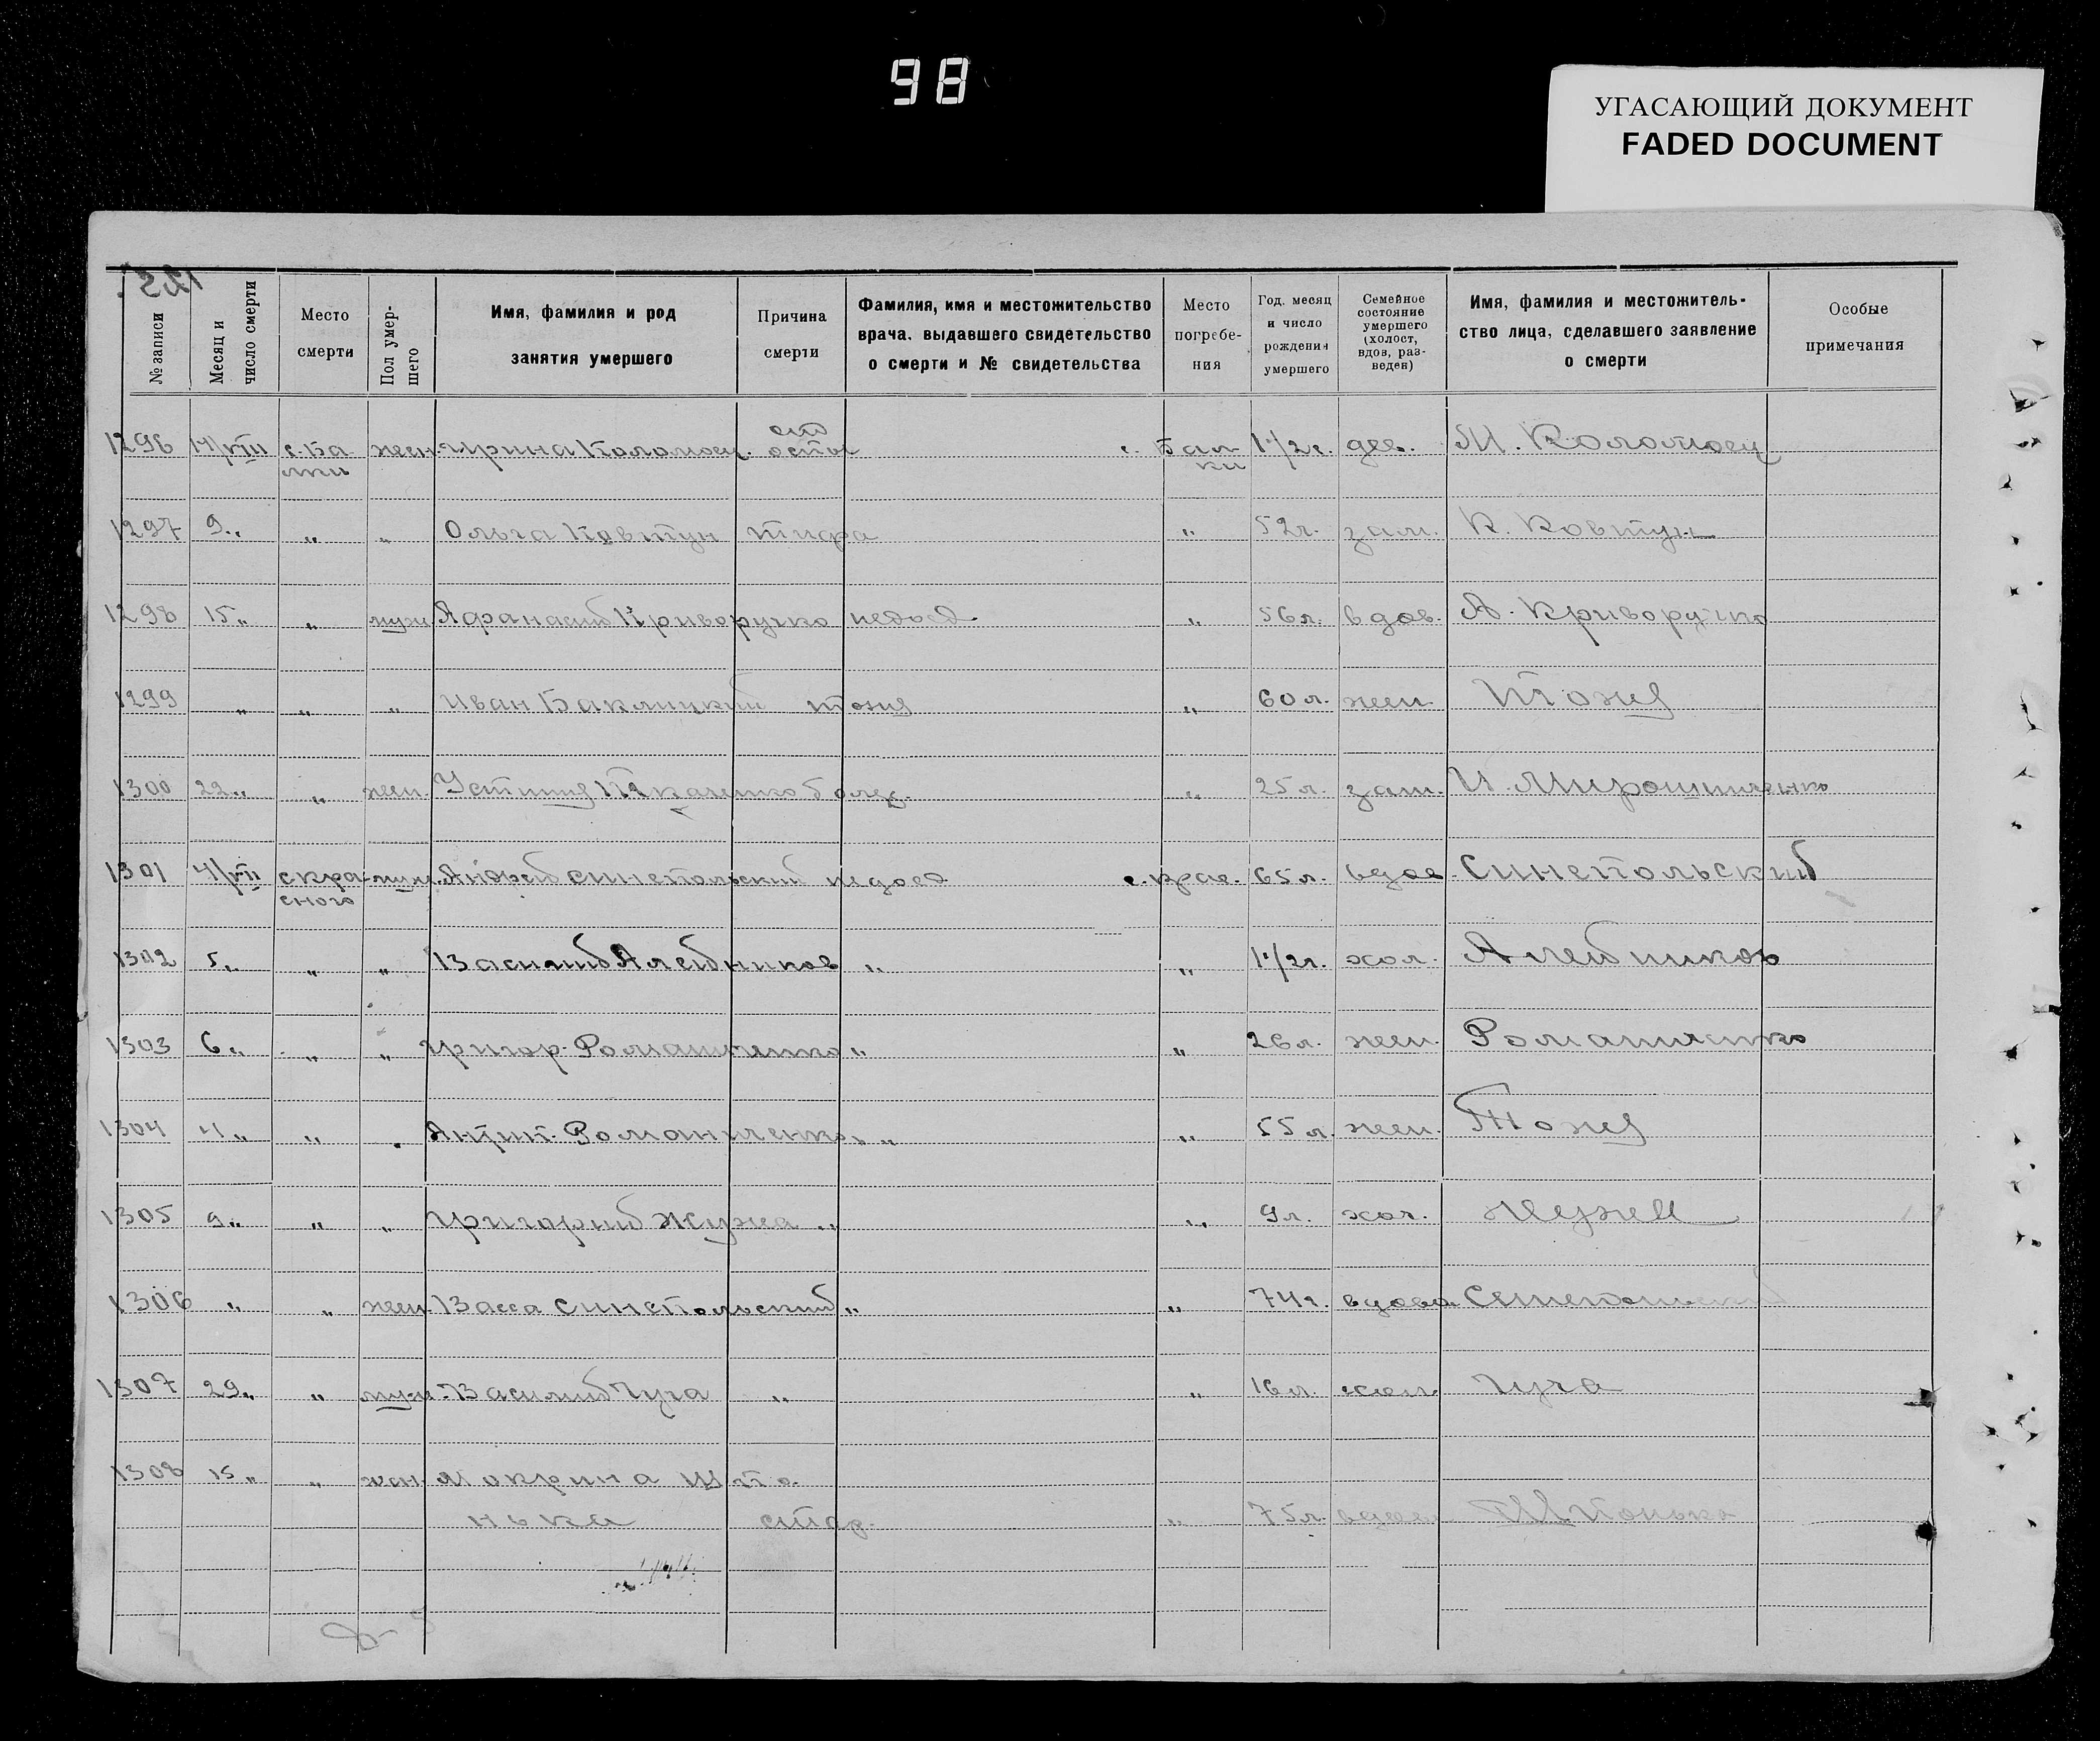 98
УГАСАЮЩИЙ ДОКУМЕНТ
FADED DOCUMENT
№ записи
Месяц и число смерти
Место смерти
Пол умер-шего
Имя, фамилия и род занятия умершего
Причина смерти
Фамилия, имя и местожительство врача, выдавшего свидетельство о смерти и № свидетельства
Место погребе-ния
Год, месяц и число рождения умершего
Семейное состояние умершего (холост, вдов, раз-веден)
Имя, фамилия и местожитель-ство лица, сделавшего заявление о смерти
Особые примечания
1296 14/VIII с. Ба жен. Ирина Коломоец. от оспы с. Бал 1 1/2 г. дев. М. Коломоец
лки ки
1297 9 „ „ „ Ольга Ковтун тифа „ 52 г. зам. К. Ковтун
1298 15 „ „ муж Афанасий Криворучко недоед „ 56 л. вдов. А. Криворучко
1299 „ „ „ Иван Баклицкий тоже „ 60 л. жен. Тоже
1300 22 „ „ жен. Устиния Ткаченко болез. „ 25 л. зам. И. Мирошниченко
1301 4/VII с кра муж. Андрей Синепольский недоед с. крас. 65 л. вдов. Синепольский
сного
1302 5 „ „ „ Василий Алейников „ „ 1 1/2 г. хол. Алейников
1303 6 „ „ „ Григор. Романченко „ „ 26 л. жен. Романченко
1304 4 „ „ „ Антип. Романченко „ „ „ 55 л. жен. Тоже
1305 9 „ „ „ Григорий Жужа „ „ 9 л. хол.
1306 „ „ жен. Васса Синепольский „ „ 74 г. вдова
1307 29 „ „ муж. Василий Чуга „ „ 16 л. хол. Чуга
1308 15 „ „ жен. Мокрина Шпо
нька стар. „ 75 л. вдова Шпонька